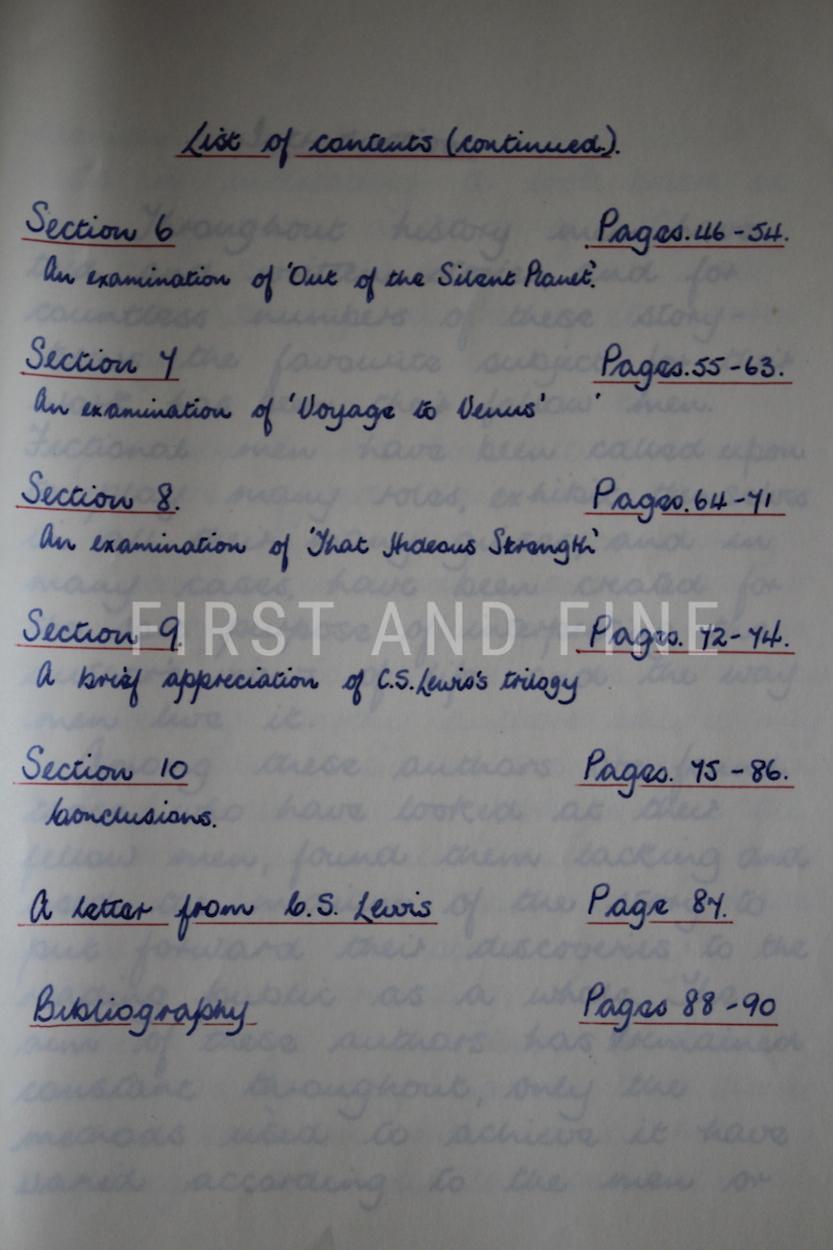 List of contents (continued).
Section 6 Pages. 46 - 54.
An examination of 'Out of the Silent Planet'.
Section 7 Pages. 55 - 63.
An examination of 'Voyage to Venus'
Section 8. Pages. 64 - 71
An examination of 'That Hideous Strength'
FIRST AND FINE
Section 9. Pages. 72 - 74.
A brief appreciation of C.S. Lewis's trilogy
Section 10 Pages. 75 - 86.
Conclusions.
A letter from C.S. Lewis Page 87.
Bibliography Pages 88 - 90